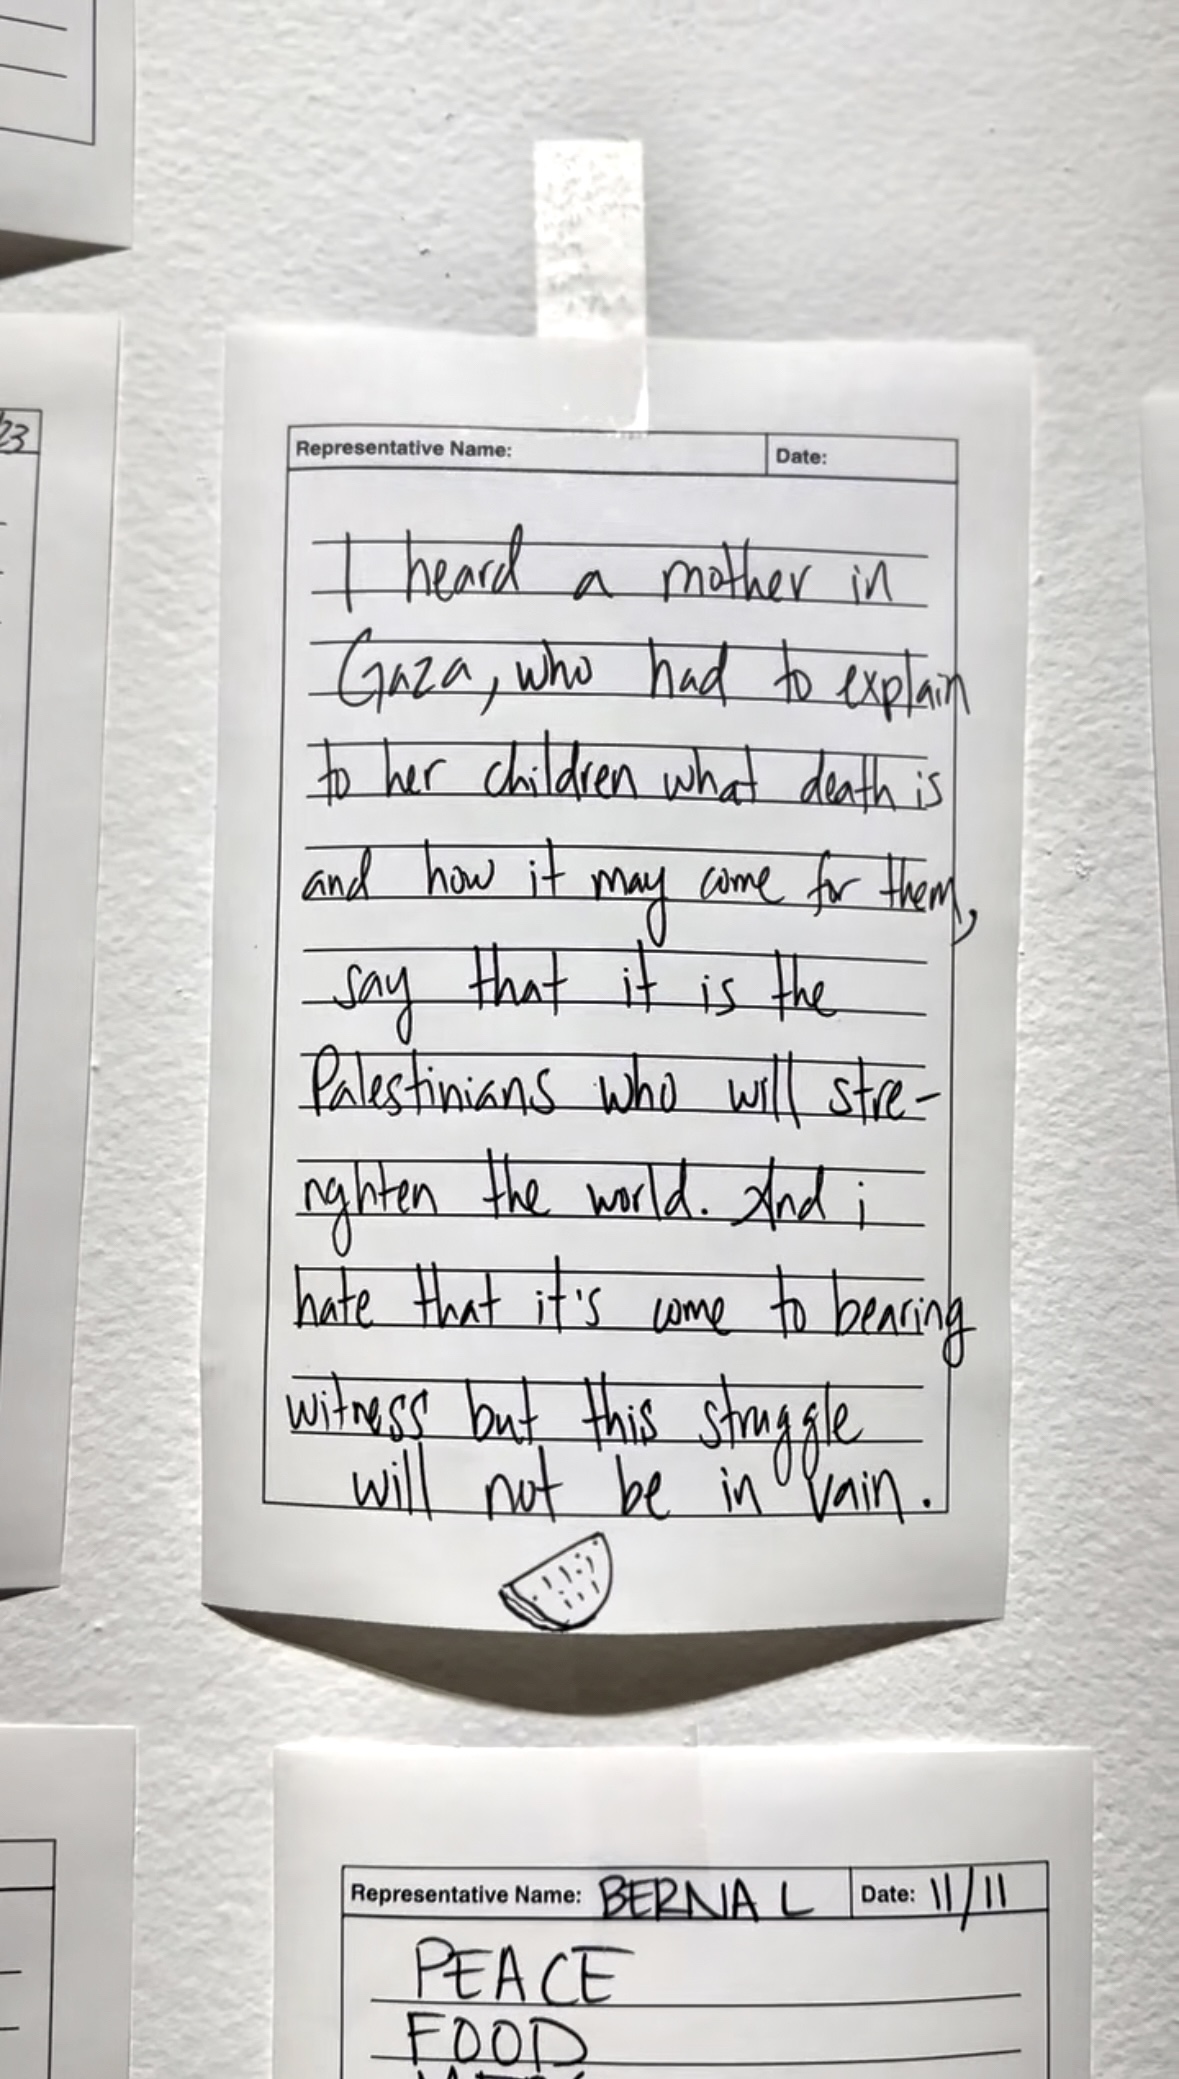 23
Representative Name:
Date:
I heard a mother in
Gaza, who had to explain
to her children what death is
and how it may come for them,
say that it is the
Palestinians who will stre-
nghten the world. And i
hate that it's come to bearing
witness but this struggle
will not be in vain.
Representative Name: BERNAL
Date: 11/11
PEACE
FOOD